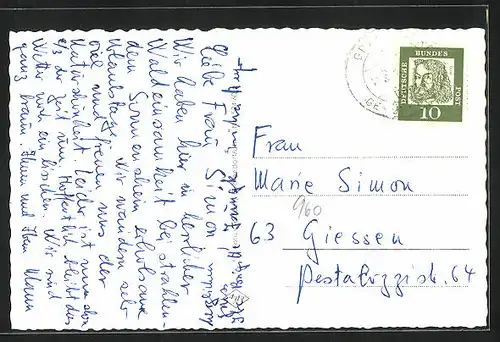 Liebe Frau Simon
Wir haben hier in herrlicher
Waldeinsamkeit bei strahlen-
dem Sonnenschein erholsame
Urlaubstage. Wir wandern sehr
viel und freuen uns der
Naturschönheit. Leider ist nun schon
die Zeit um. Hoffentlich bleibt das
Wetter noch ein bisschen. Wir sind
ganz braun. Ihnen und Ihrem Mann
DEUTSCHE
BUNDES
POST
10
Frau
Marie Simon
960
63 Giessen
Pestalozzistr. 64